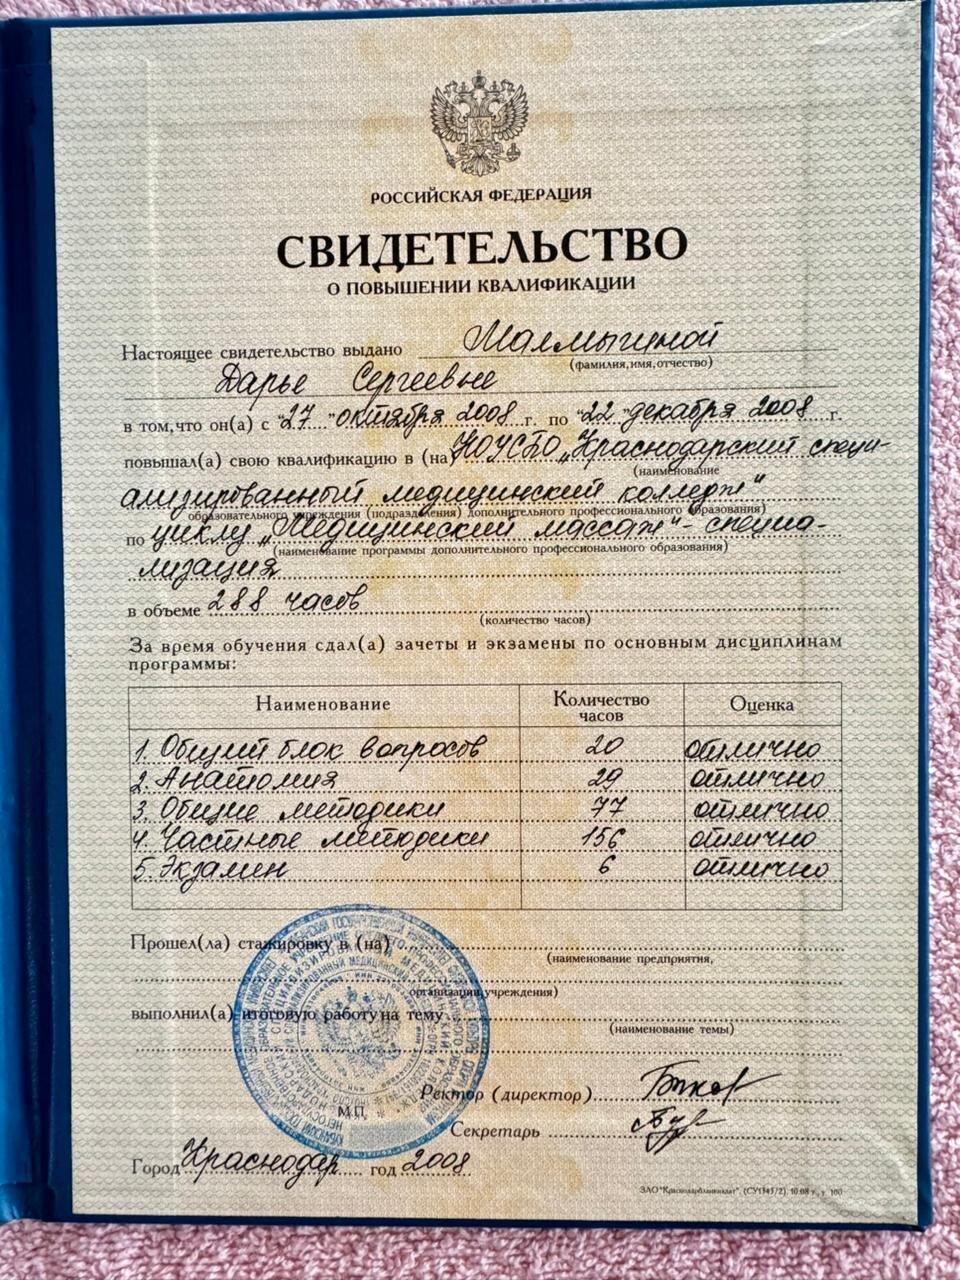 РОССИЙСКАЯ ФЕДЕРАЦИЯ
СВИДЕТЕЛЬСТВО
О ПОВЫШЕНИИ КВАЛИФИКАЦИИ
Настоящее свидетельство выдано Малмыгиной
(фамилия, имя, отчество)
Дарье Сергеевне
в том, что он(а) с "27" октября 2008 г. по "22" декабря 2008 г.
повышал(а) свою квалификацию в (на) НОУСПО „Краснодарский специ-
(наименование
ализированный медицинский колледж"
образовательного учреждения (подразделения) дополнительного профессионального образования)
по циклу „Медицинский массаж"- специа-
(наименование программы дополнительного профессионального образования)
лизация
в объеме 288 часов
(количество часов)
За время обучения сдал(а) зачеты и экзамены по основным дисциплинам
программы:
Наименование Количество часов Оценка
1. Общий блок вопросов 20 отлично
2. Анатомия 29 отлично
3. Общие методики 77 отлично
4. Частные методики 156 отлично
5. Экзамен 6 отлично
Прошел(ла) стажировку в (на)
(наименование предприятия,
организации, учреждения)
выполнил(а) итоговую работу на тему
(наименование темы)
Ректор (директор)
М.П.
Секретарь
Город Краснодар год 2008
ЗАО "Краснодарбланкиздат". (СУ1343/2). 10.08 г., у. 100